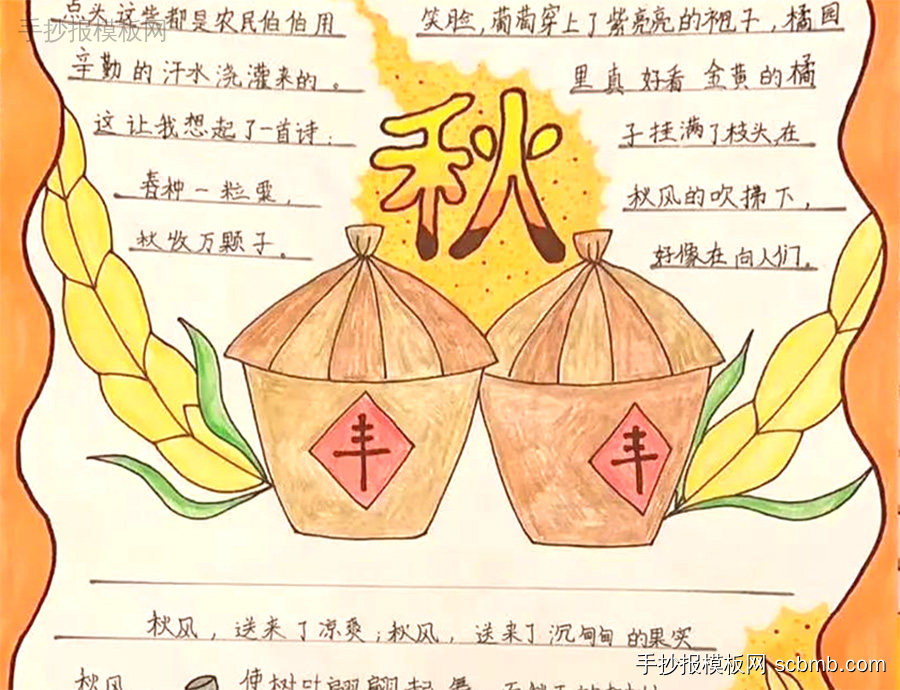 点头这些都是农民伯伯用
辛勤的汗水浇灌来的。
这让我想起了一首诗:
春种一粒粟,
秋收万颗子。
笑脸,葡萄穿上了紫亮亮的袍子,橘园
里真好看金黄的橘
子挂满了枝头在
秋风的吹拂下,
好像在向人们。
秋
丰
丰
秋风,送来了凉爽;秋风,送来了沉甸甸的果实
秋风
使树叶翩翩起舞
手抄报模板网
手抄报模板网 scbmb.com